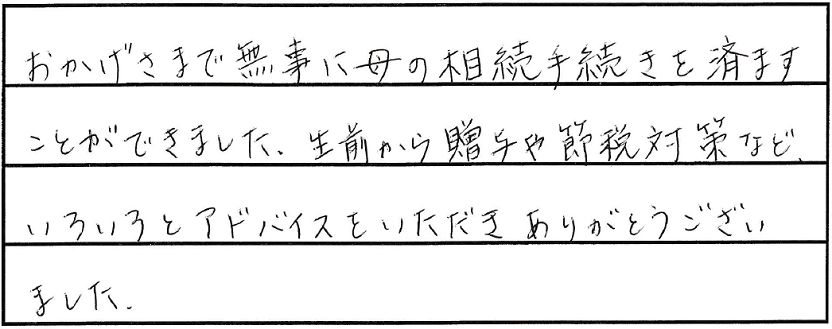 おかげさまで無事に母の相続手続きを済ます
ことができました。生前から贈与や節税対策など、
いろいろとアドバイスをいただきありがとうござい
ました。